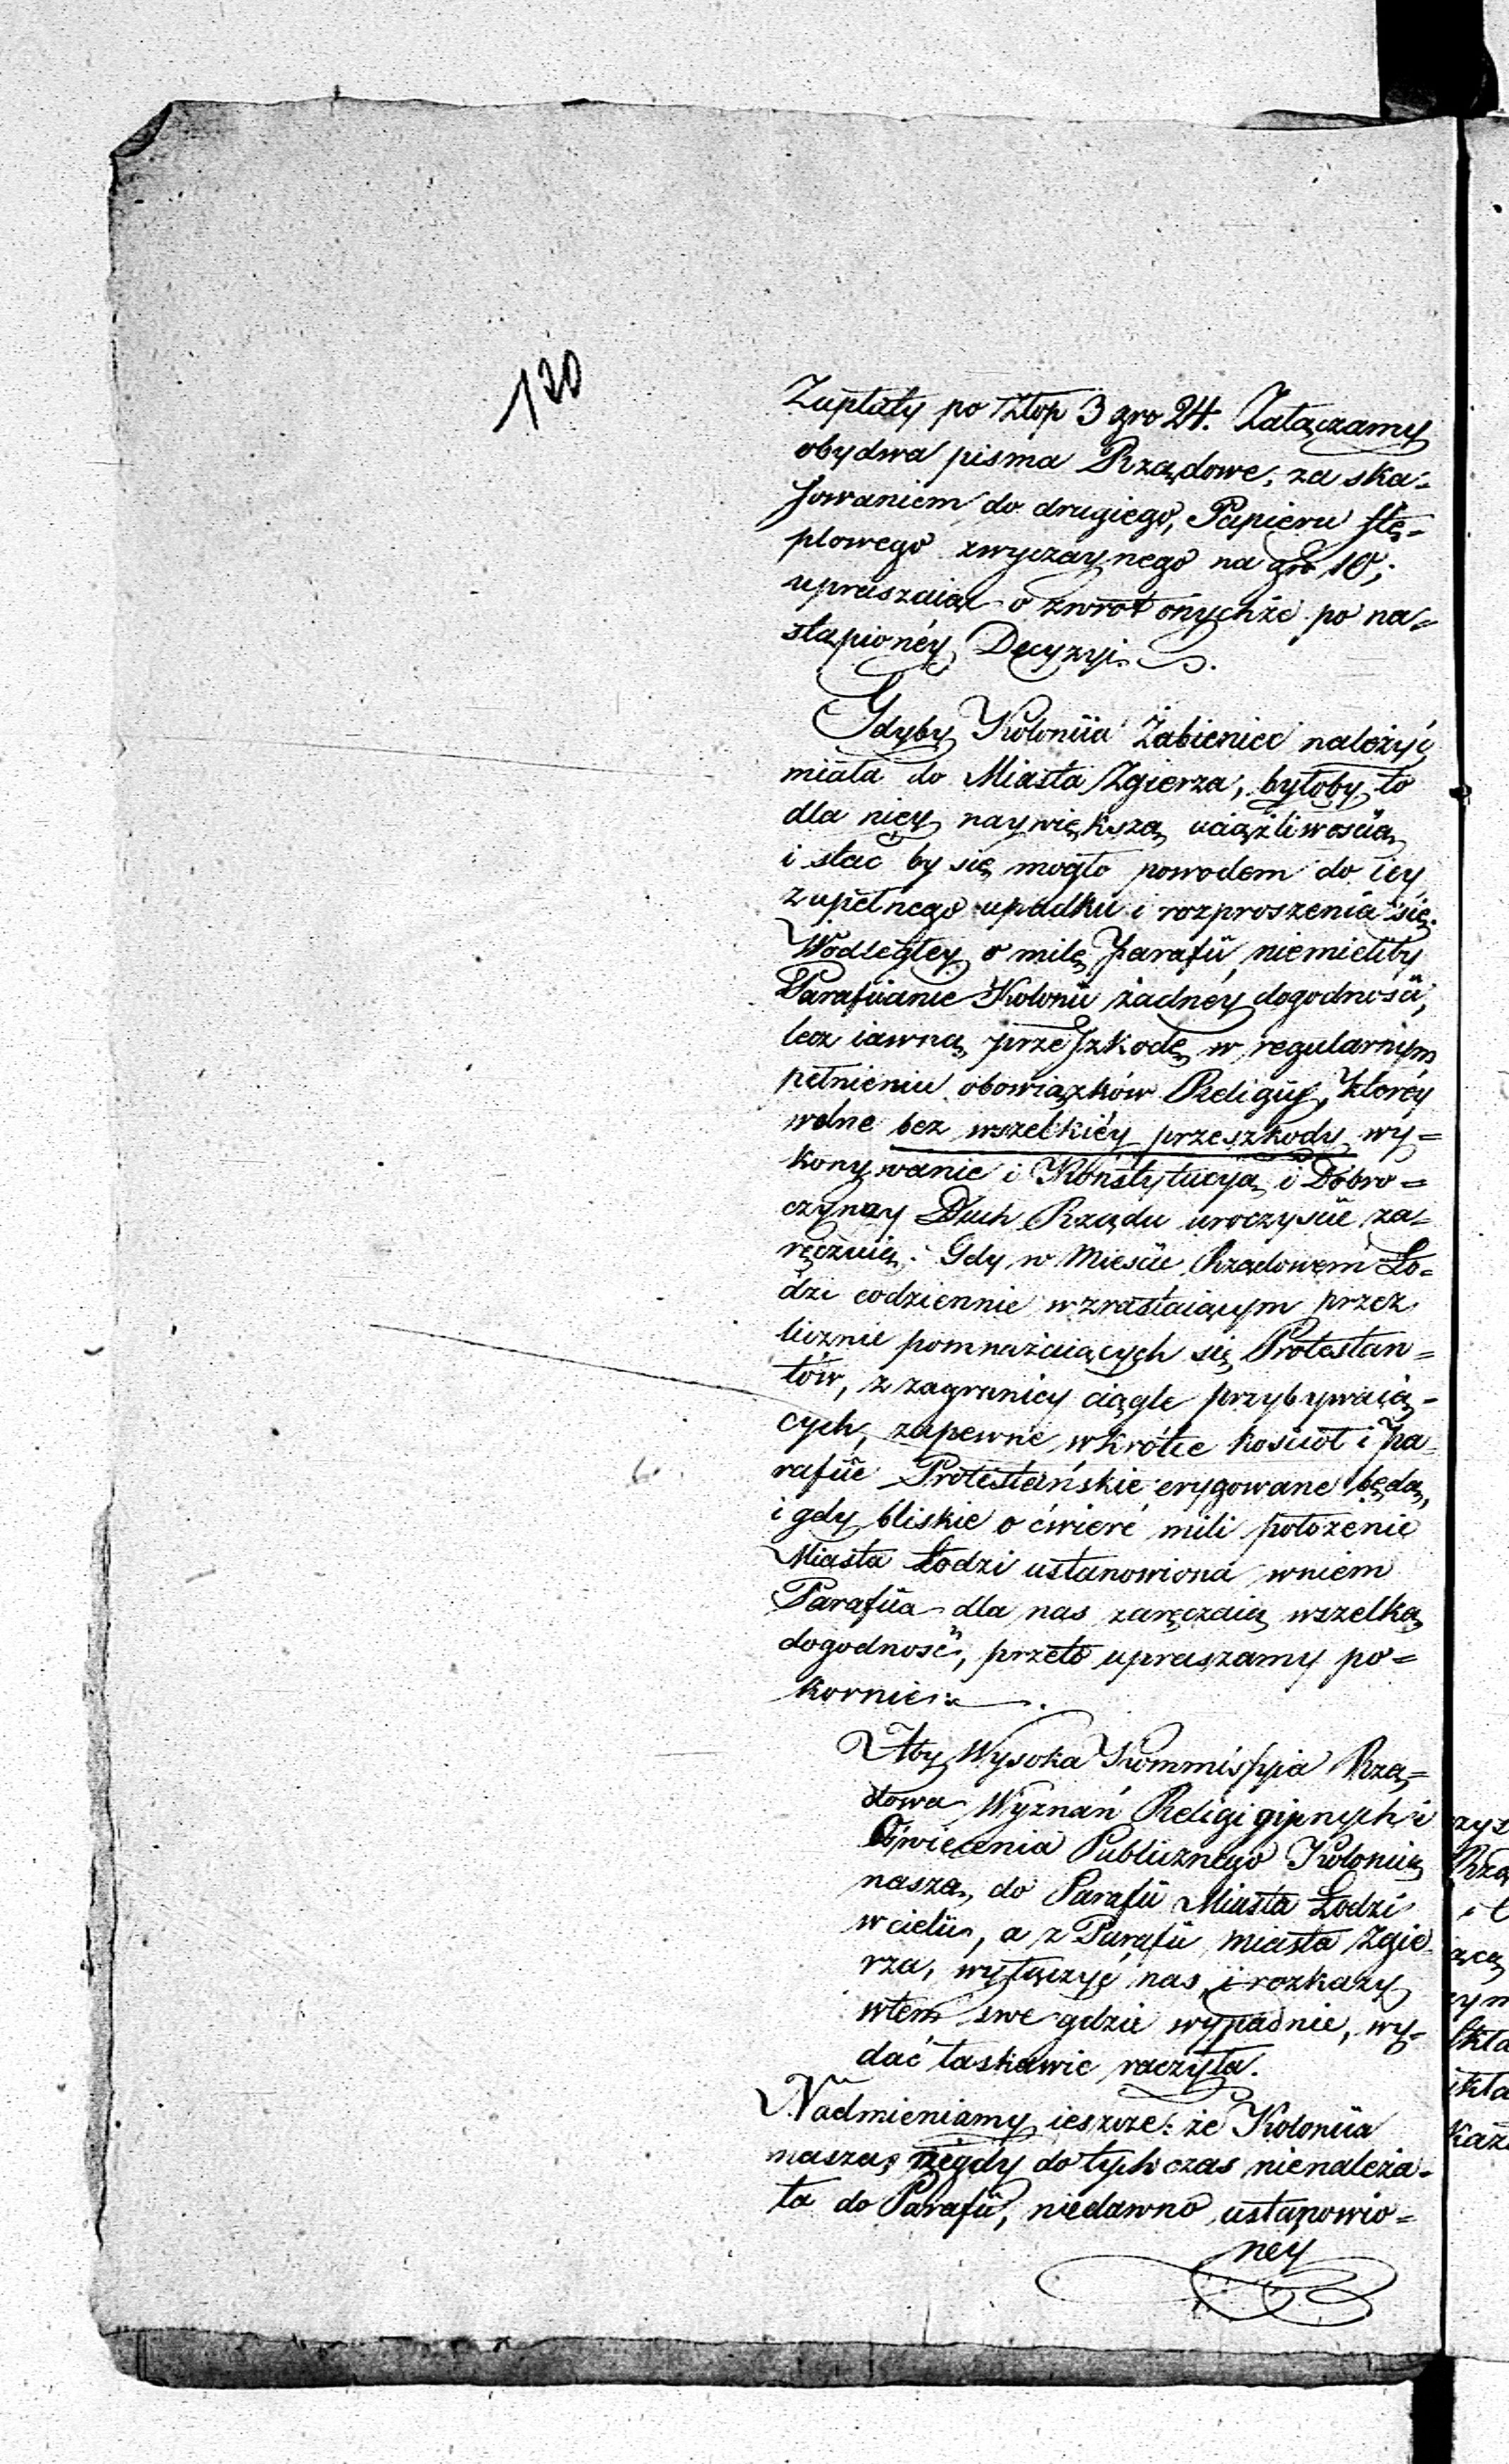 120
Zapłaty po Złop 3 gro 24. Załączamy
obydwa pisma Rządowe, za ska-
sowaniem do drugiego, Papieru stę-
plowego zwyczaynego na gro 10;
upraszaiąc o zwrot onychże po na-
stąpioney Decyzyi.
Gdyby Koloniia Żabieniec należyć
miała do Miasta Zgierza, byłoby to
dla niey naywiększą uciążliwością
i stać by się mogło powodem do iey
zupełnego upadku i rozproszenia się.
Wodległey o milę Parafii, niemieliby
Parafiianie Kolonii żadney dogodności,
lecz iawną przeszkodę w regularnym
pełnieniu obowiązków Religii, którey
wolne bez wszelkiéy przeszkody wy-
konywanie i Konstytucya i Dobro-
czynny Duch Rządu uroczyście za-
ręczaią. Gdy w Mieście Rządowem Ło-
dzi codziennie wzrastaiącym przez
licznie pomnażaiących się Protestan-
tów, z zagranicy ciągle przybywaią-
cych, zapewne wkrótce kościół i Pa-
rafiie Protestańskie erygowane będą,
i gdy bliskie o ćwierć mili położenie
Miasta Łodzi ustanowiona wniem
Parafiia dla nas zaręczaią wszelką
dogodność, przeto upraszamy po-
kornie:
Aby Wysoka Kommissyia Rzą-
dowa Wyznań Religigijnych i
Oświecenia Publicznego Koloniią
naszą, do Parafii Miasta Łodzi
wcielić, a z Parafii miasta Zgie-
rza, wyłączyć nas, i rozkazy
wtem swe gdzie wypadnie, wy-
dać łaskawie raczyła.
Nadmieniamy ieszcze: że Koloniia
nasza, nigdy do tych czas nienależa-
ła do Parafii, niedawno ustanowio-
ney